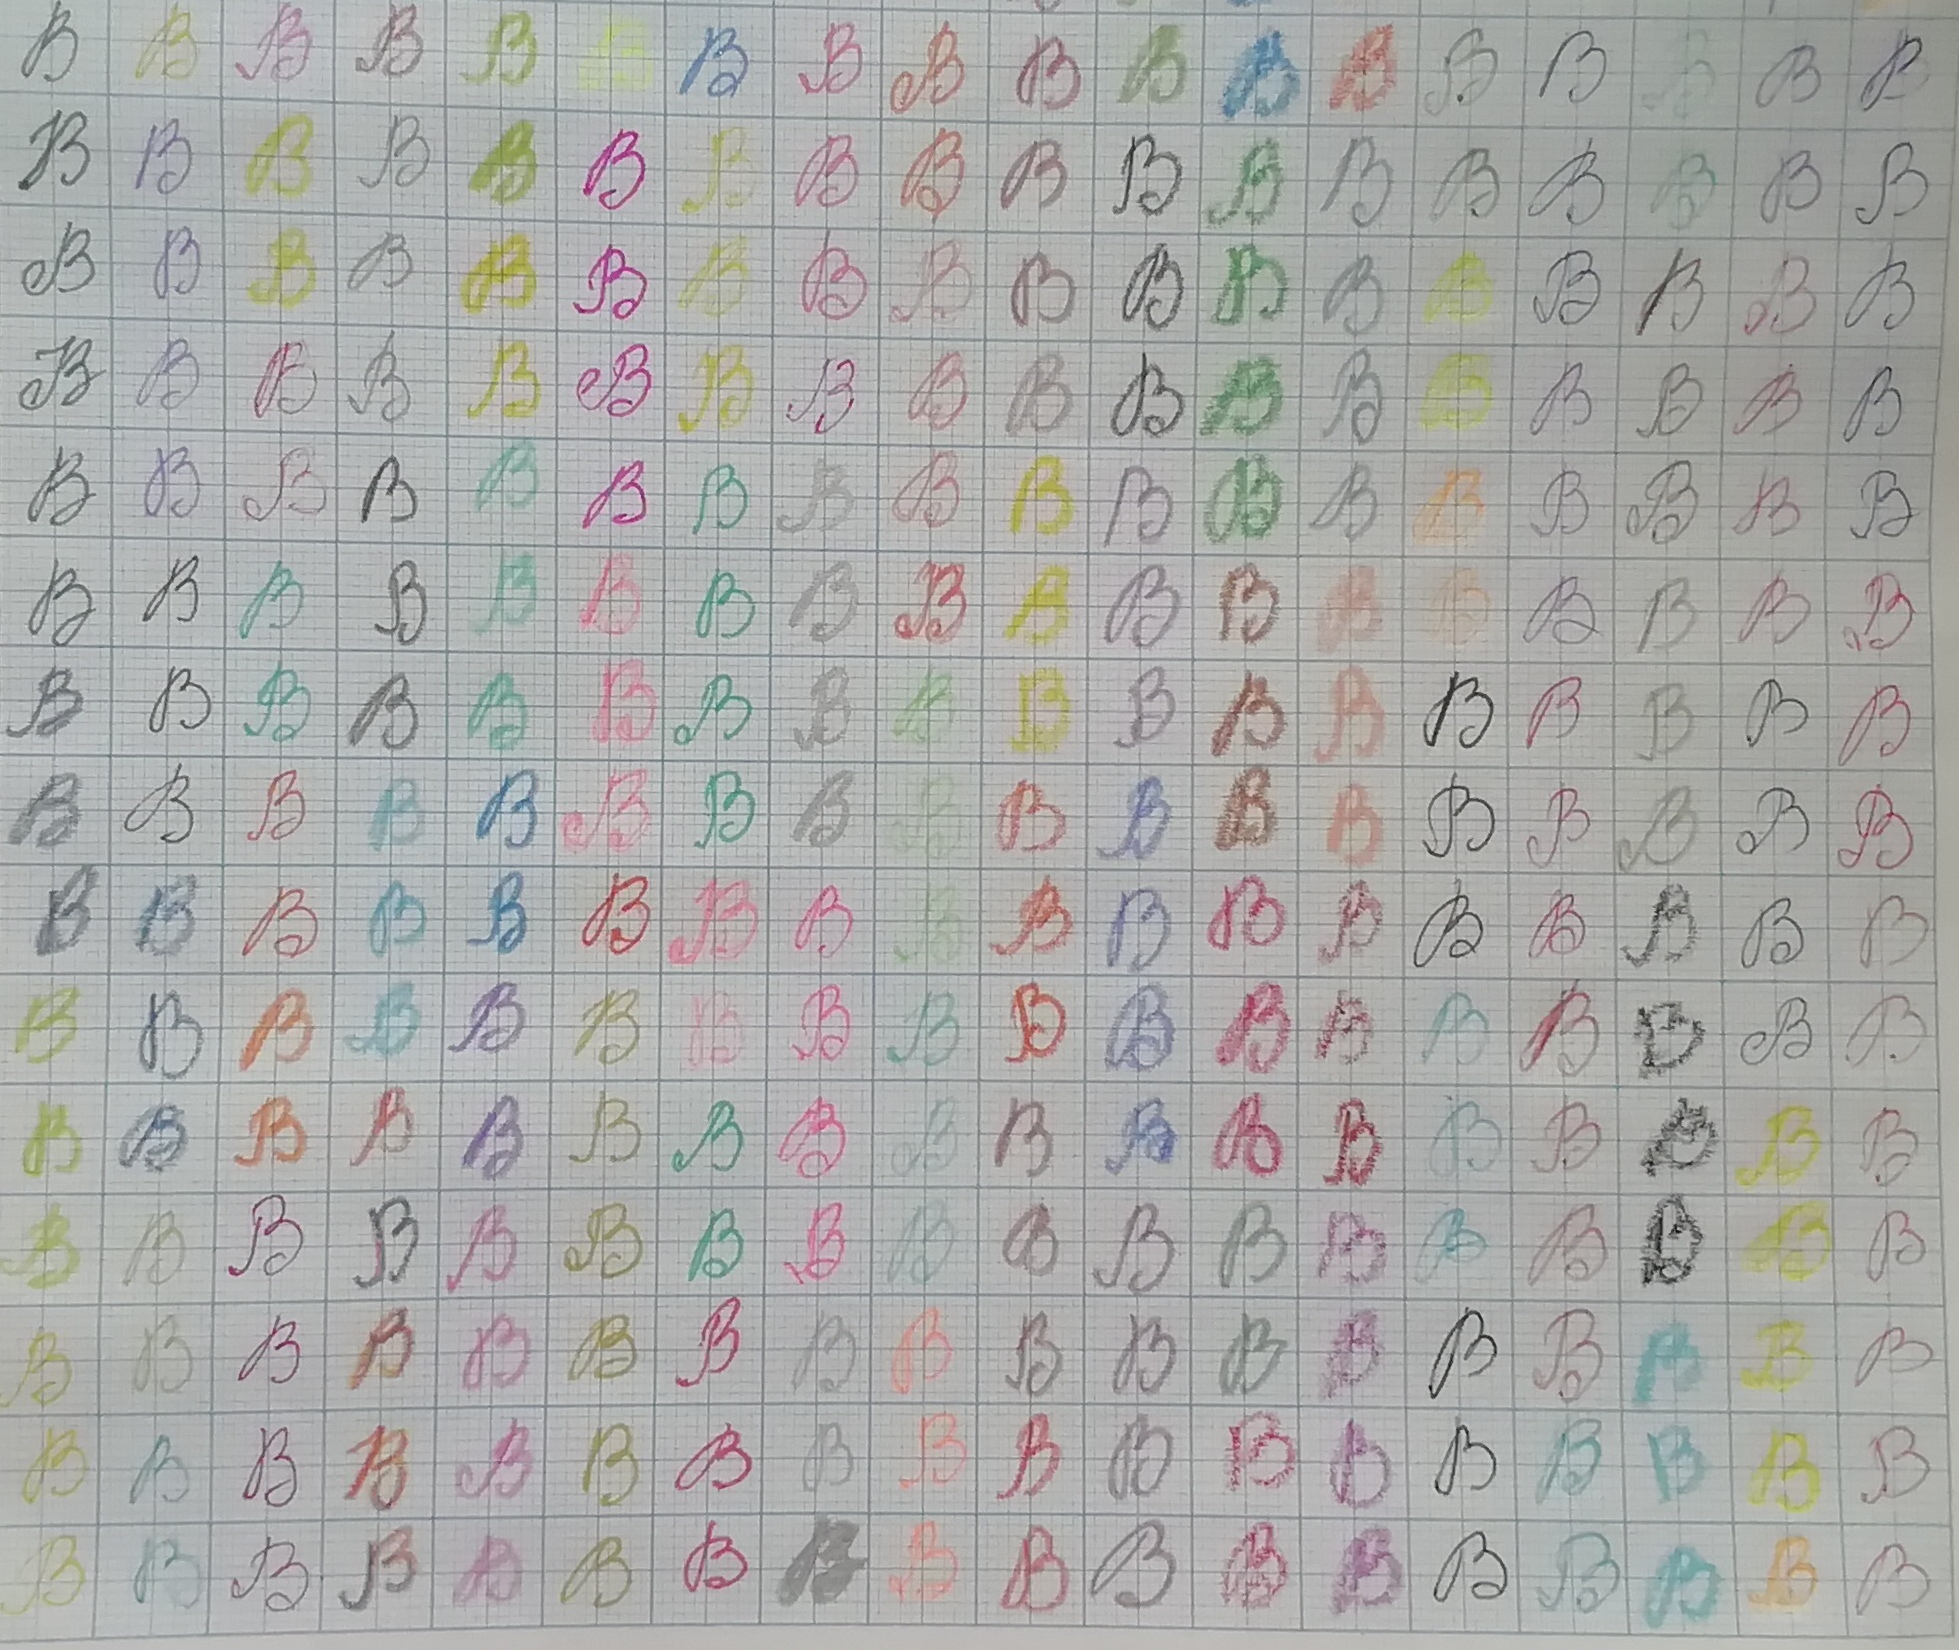 B B B B B B B B B B B B B B B B B B
B B B B B B B B B B B B B B B B B B
B B B B B B B B B B B B B B B B B B
B B B B B B B B B B B B B B B B B B
B B B B B B B B B B B B B B B B B B
B B B B B B B B B B B B B B B B B B
B B B B B B B B B B B B B B B B B B
B B B B B B B B B B B B B B B B B B
B B B B B B B B B B B B B B B B B B
B B B B B B B B B B B B B B B B B B
B B B B B B B B B B B B B B B B B B
B B B B B B B B B B B B B B B B B B
B B B B B B B B B B B B B B B B B B
B B B B B B B B B B B B B B B B B B
B B B B B B B B B B B B B B B B B B